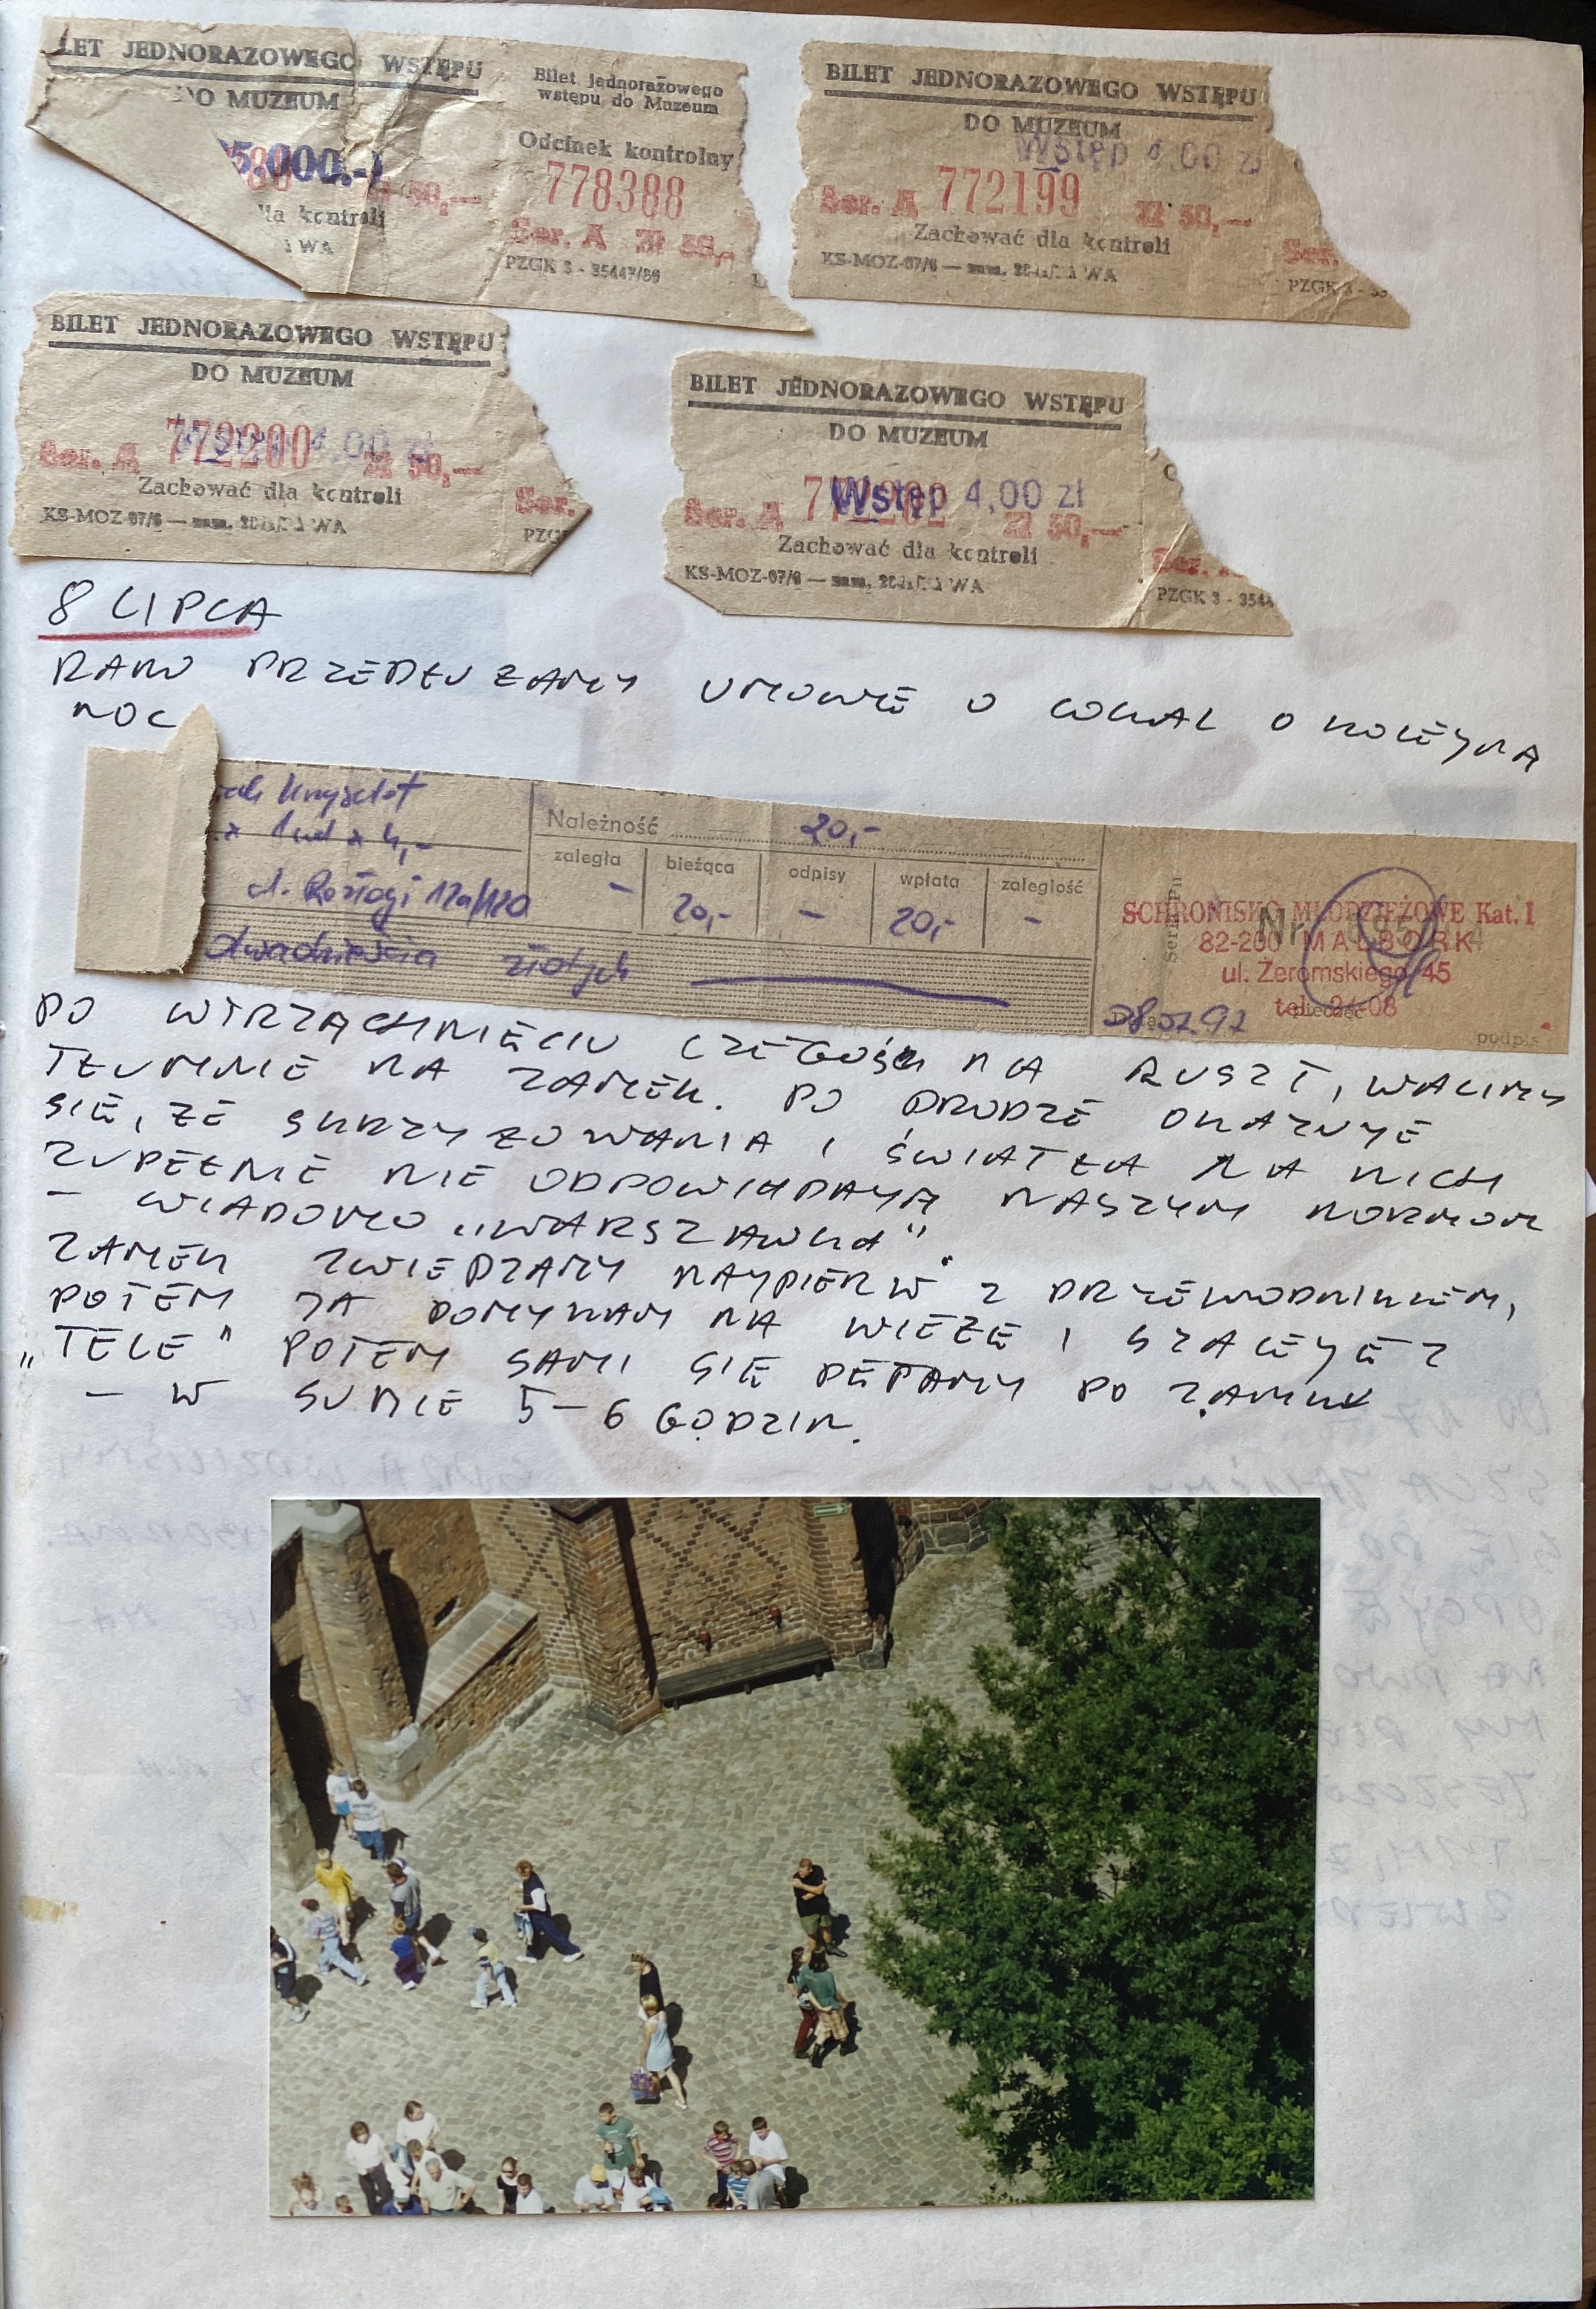 LET JEDNORAZOWEGO WSTĘPU
DO MUZEUM
5.000.-
Zł 50,—
dla kontroli
WA
Bilet jednorazowego
wstępu do Muzeum
Odcinek kontrolny
778388
Ser. A Zł 50,-
PZGK 3 - 35447/86
BILET JEDNORAZOWEGO WSTĘPU
DO MUZEUM
Wstęp 4,00 zł
Ser. A 772199 Zł 50,—
Zachować dla kontroli
KS-MOZ-07/6 — WA
Ser.
PZGK 3 - 35
BILET JEDNORAZOWEGO WSTĘPU
DO MUZEUM
4,00 zł
Ser. A 772200 Zł 50,—
Zachować dla kontroli
KS-MOZ-07/6 — WA
Ser.
PZG
BILET JEDNORAZOWEGO WSTĘPU
DO MUZEUM
Wstęp 4,00 zł
Ser. A Zł 50,—
Zachować dla kontroli
KS-MOZ-07/6 — WA
Ser.
PZGK 3 - 3544
8 LIPCA
RANO PRZEDŁUŻAMY UMOWĘ O LOKAL O KOLEJNĄ
NOC
Krzysztof
Należność 20,-
zaległa bieżąca odpisy wpłata zaległość
- 20,- - 20,- -
ul. Rozłogi 12a/120
dwadzieścia złotych
Nr
SCHRONISKO MŁODZIEŻOWE Kat. I
82-200 MALBORK
ul. Żeromskiego 45
tel. 24-08
pieczęć
podpis
PO WTRZĄCHNIĘCIU CZEGOŚ NA RUSZT, WALIMY
TŁUMNIE NA ZAMEK. PO DRODZE OKAZUJE
SIĘ, ŻE SKRZYŻOWANIA I ŚWIATŁA NA NICH
ZUPEŁNIE NIE ODPOWIADAJĄ NASZYM NORMOM
— WIADOMO „WARSZAWKA".
ZAMEK ZWIEDZAMY NAJPIERW Z PRZEWODNIKIEM,
POTEM JA POMYKAM NA WIEŻĘ I SZALEJĘ Z
„TELE" POTEM SAMI SIĘ PĘTAMY PO ZAMKU
— W SUMIE 5-6 GODZIN.